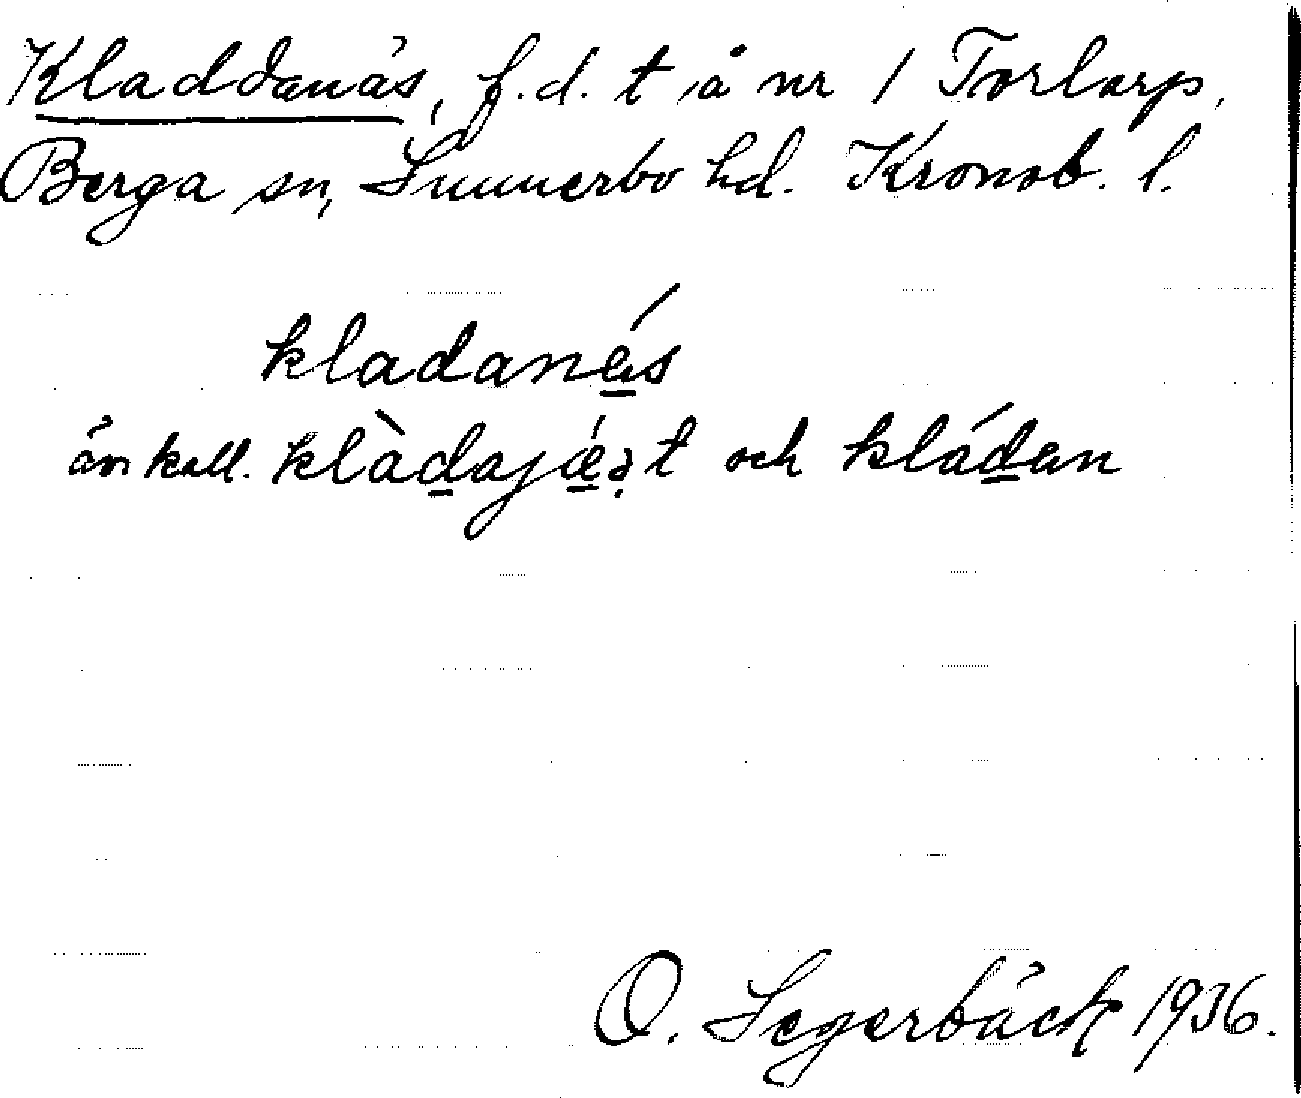 Kladdanäs, f.d. t å nr 1 Torlarp,
Berga sn, Sunnerbo hd. Kronob. l.
kladanǽs
än kall. klàdajǽṛt och kládan
O. Segerbäck 1936.